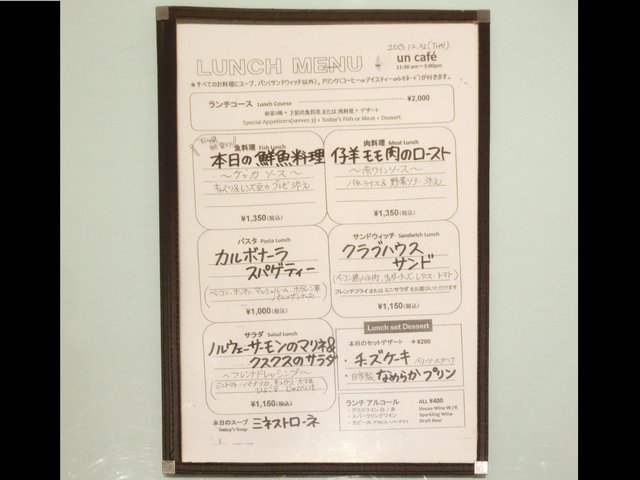 2013.12.12(Thu)
LUNCH MENU
un café
11:30 am ～ 3:00pm
★すべてのお料理にスープ、パン(サンドウィッチ以外)、ドリンク(コーヒーorアイスティーorレモネード)が付きます。
ランチコース Lunch Course ¥2,000
前菜3種 + 下記の魚料理 または 肉料理 + デザート
Special Appetizers(serves 3) + Today's Fish or Meat + Dessert
魚料理 Fish Lunch
本日の鮮魚料理
ソース～
¥1,350(税込)
肉料理 Meat Lunch
仔羊モモ肉のロースト
～赤ワインソース～
バターライス & 野菜ソテー添え
¥1,350(税込)
パスタ Pasta Lunch
カルボナーラ
スパゲティー
¥1,000(税込)
サンドウィッチ Sandwich Lunch
クラブハウス
サンド
レタス・トマト)
フレンチフライ または ミニサラダ をお選びいただけます
¥1,150(税込)
サラダ Salad Lunch
ノルウェーサーモンのマリネ&
クスクスのサラダ
～フレンチドレッシング～
¥1,150(税込)
Lunch set Dessert
本日のセットデザート +¥200
・チーズケーキ ベリーソースがけ
・自家製 なめらかプリン
ランチ アルコール ALL ¥400
・グラスワイン 白 / 赤 House Wine W/R
・スパークリングワイン Sparkling Wine
・生ビール Draft Beer
本日のスープ ミネストローネ
Today's Soup